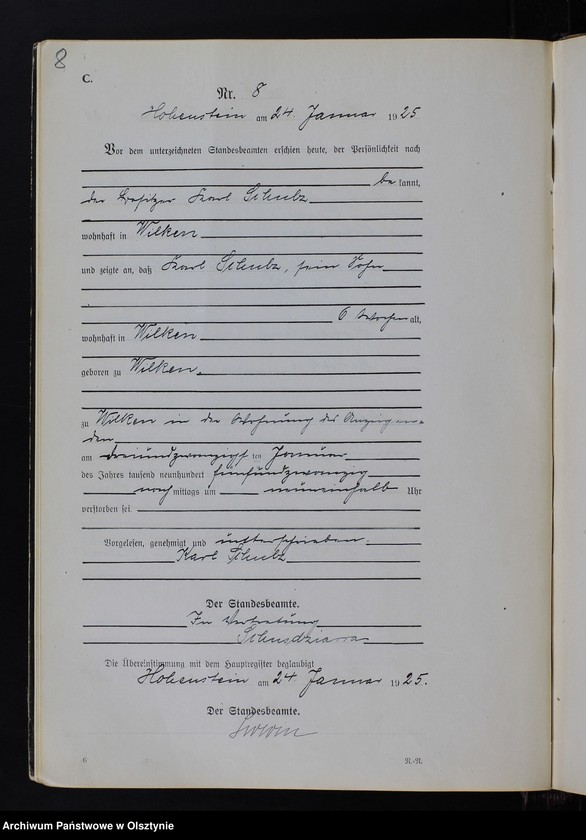 8
C.
Nr. 8
Hohenstein am 24. Januar 1925
Vor dem unterzeichneten Standesbeamten erschien heute, der Persönlichkeit nach
bekannt,
der Besitzer Karl Schulz
wohnhaft in Wilken
und zeigte an, daß Karl Schulz, sein Sohn
6 Wochen alt,
wohnhaft in Wilken
geboren zu Wilken
zu Wilken in der Wohnung des Anzeigen=
den
am dreiundzwanzigsten Januar
des Jahres tausend neunhundert fünfundzwanzig
nachmittags um neuneinhalb Uhr
verstorben sei.
Vorgelesen, genehmigt und unterschrieben.
Karl Schulz
Der Standesbeamte.
In Vertretung
Die Übereinstimmung mit dem Hauptregister beglaubigt
Hohenstein am 24. Januar 1925.
Der Standesbeamte.
6 R.-R.
Archiwum Państwowe w Olsztynie